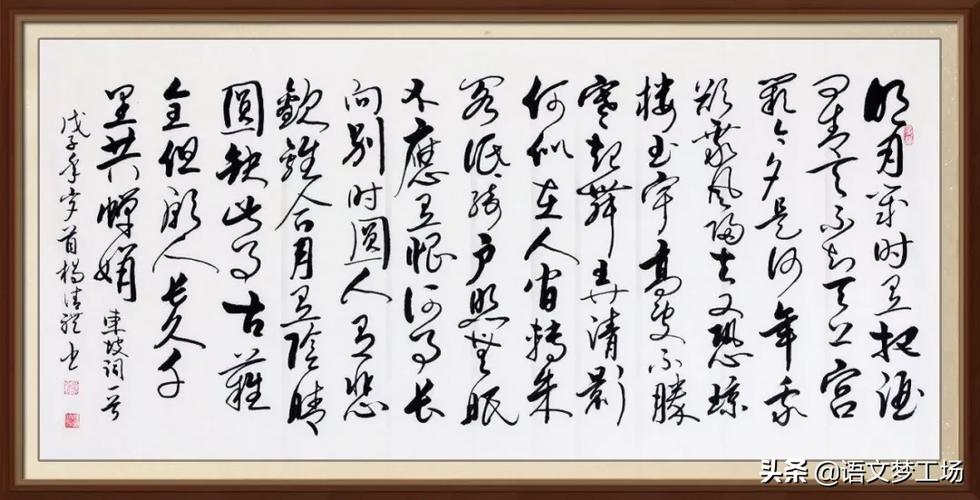 明月幾时有把酒
问青天不知天上宫
阙今夕是何年我
欲乘风归去又恐琼
楼玉宇高處不勝
寒起舞弄清影
何似在人间轉朱
阁低绮户照無眠
不應有恨何事长
向别时圓人有悲
歡離合月有陰晴
圓缺此事古難
全但願人长久千
里共嬋娟 東坡词一首
戊子年岁首楊清礼书
头条 @语文梦工场